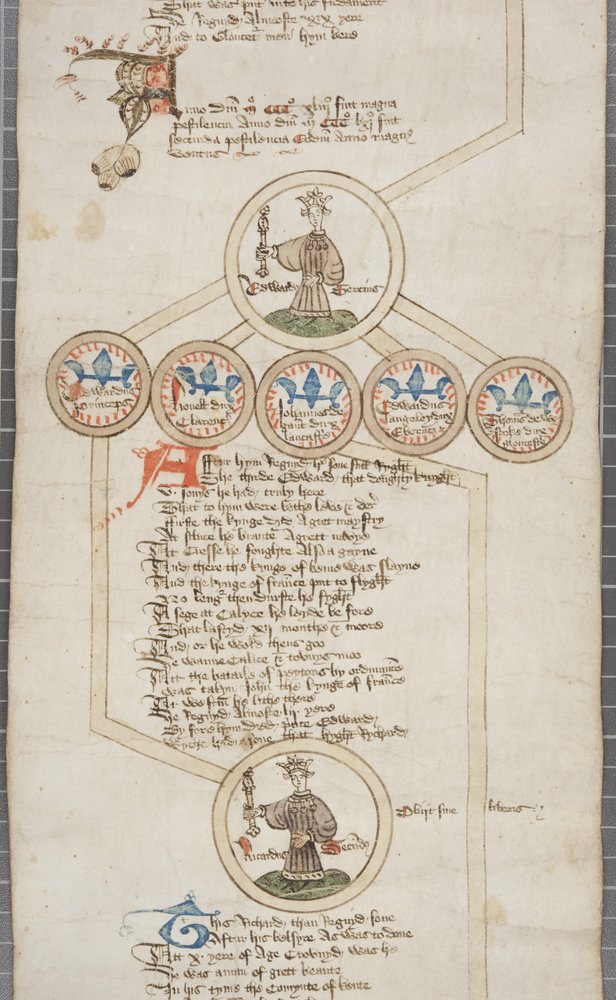 That was put into his fundament
he Regnyd Almoste xix yere
And to Glouceter men hym bere
Anno dm̄ mo ccco xliij fuit magna
pestilencia Anno dm̄ mo ccco lxj fuit
secunda pestilencia Eodm̄ Anno magnus
ventus
Edwardus Tercius
Edwardus
Princeps
leonell dux
Clarence
Johannes de
gaunt dux
lancastr
Edwardus
langeley dux
Eboraci
Thomas de wod
stoke dux
glouceste
After hym Regnyd his sone full Ryght
The thirde Edward that doughty knyght
sonys he had truly here
That to hym were bothe leve & der
Affirste the kynge dyd A gret maystry
At sluce he brante A grett navye
At Cresse he foughte Also A gayne
And there the kynge of beme was slayne
And the kynge of france put to flyght
durste he fyght
A sege at Calyce he leyde be fore
That lastyd xij monthes & more
And or he wold thens goo
he wanne Calice & townys moo
Att the bataile of peyters by ordinance
was takyn John the kynge of france
he Regnyd Almoste lij yere
By fore hym dyed prince Edward
had A sone that hyght Rychard
Ricardus Secundus
Obiit sine liberis
This Richard than Regnyd sone
After his belsyre As was to done
Att x yere of Age Crownyd was he
he was A man of grett beaute
In his tyme the Comynte of kente